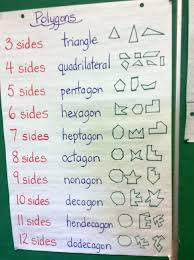 Polygons
3 sides triangle
4 sides quadrilateral
5 sides pentagon
6 sides hexagon
7 sides heptagon
8 sides octagon
9 sides nonagon
10 sides decagon
11 sides hendecagon
12 sides dodecagon